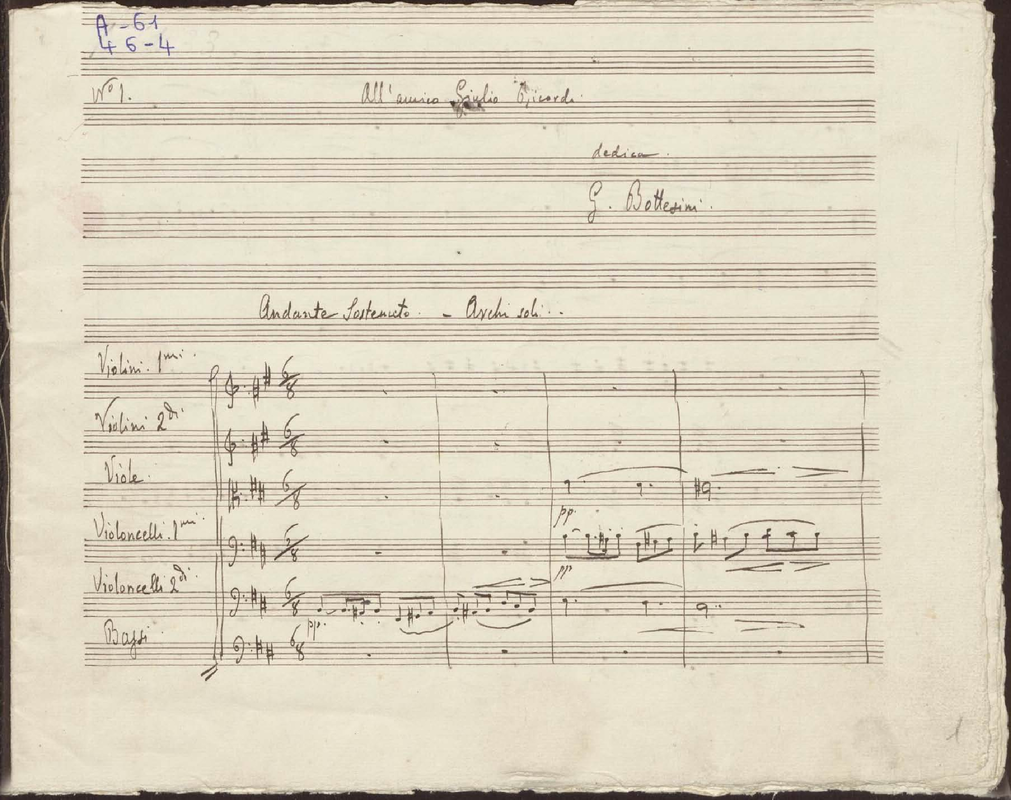 A-61
46-4
Nº 1.
All'amico Giulio Ricordi.
dedica.
G. Bottesini.
Andante Sostenuto. - Archi soli.
Violini. 1mi.
6/8
Violini 2di.
6/8
Viole.
6/8
pp.
Violoncelli. 1mi.
6/8
pp
Violoncelli 2di.
6/8
pp.
Bassi
6/8